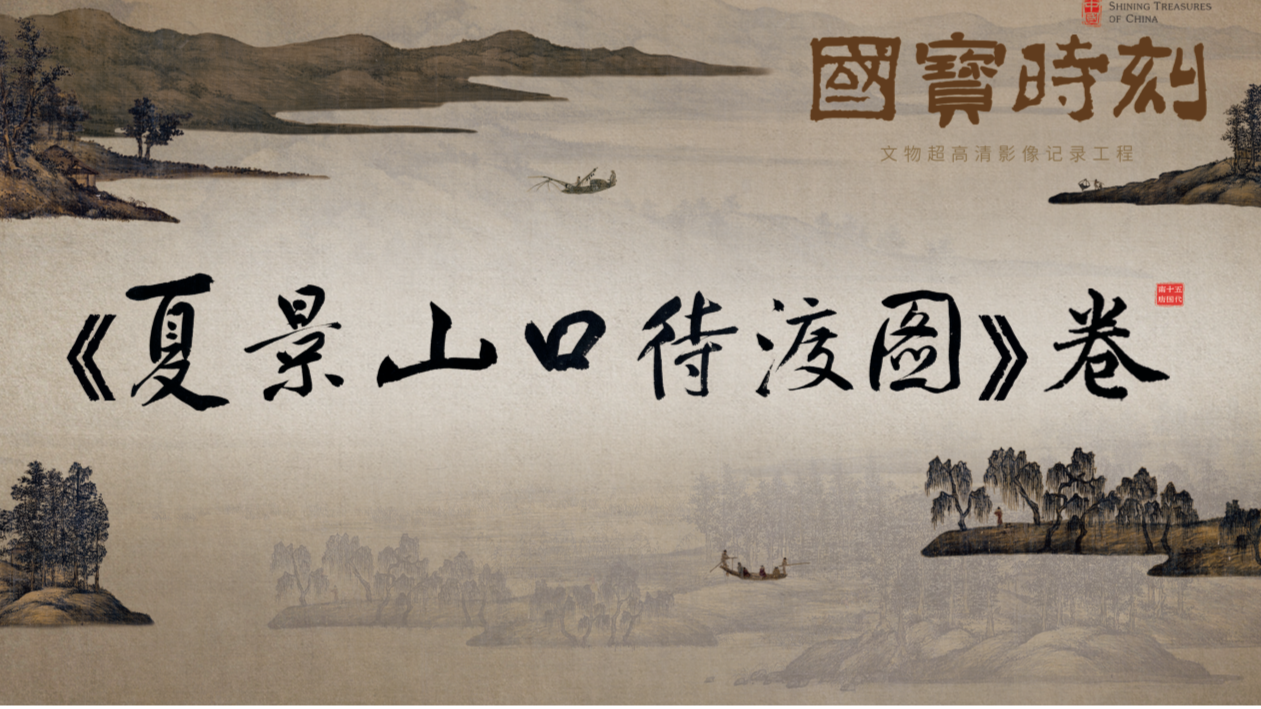 中國
SHINING TREASURES
OF CHINA
國寶時刻
文物超高清影像记录工程
《夏景山口待渡图》卷
五代
南唐